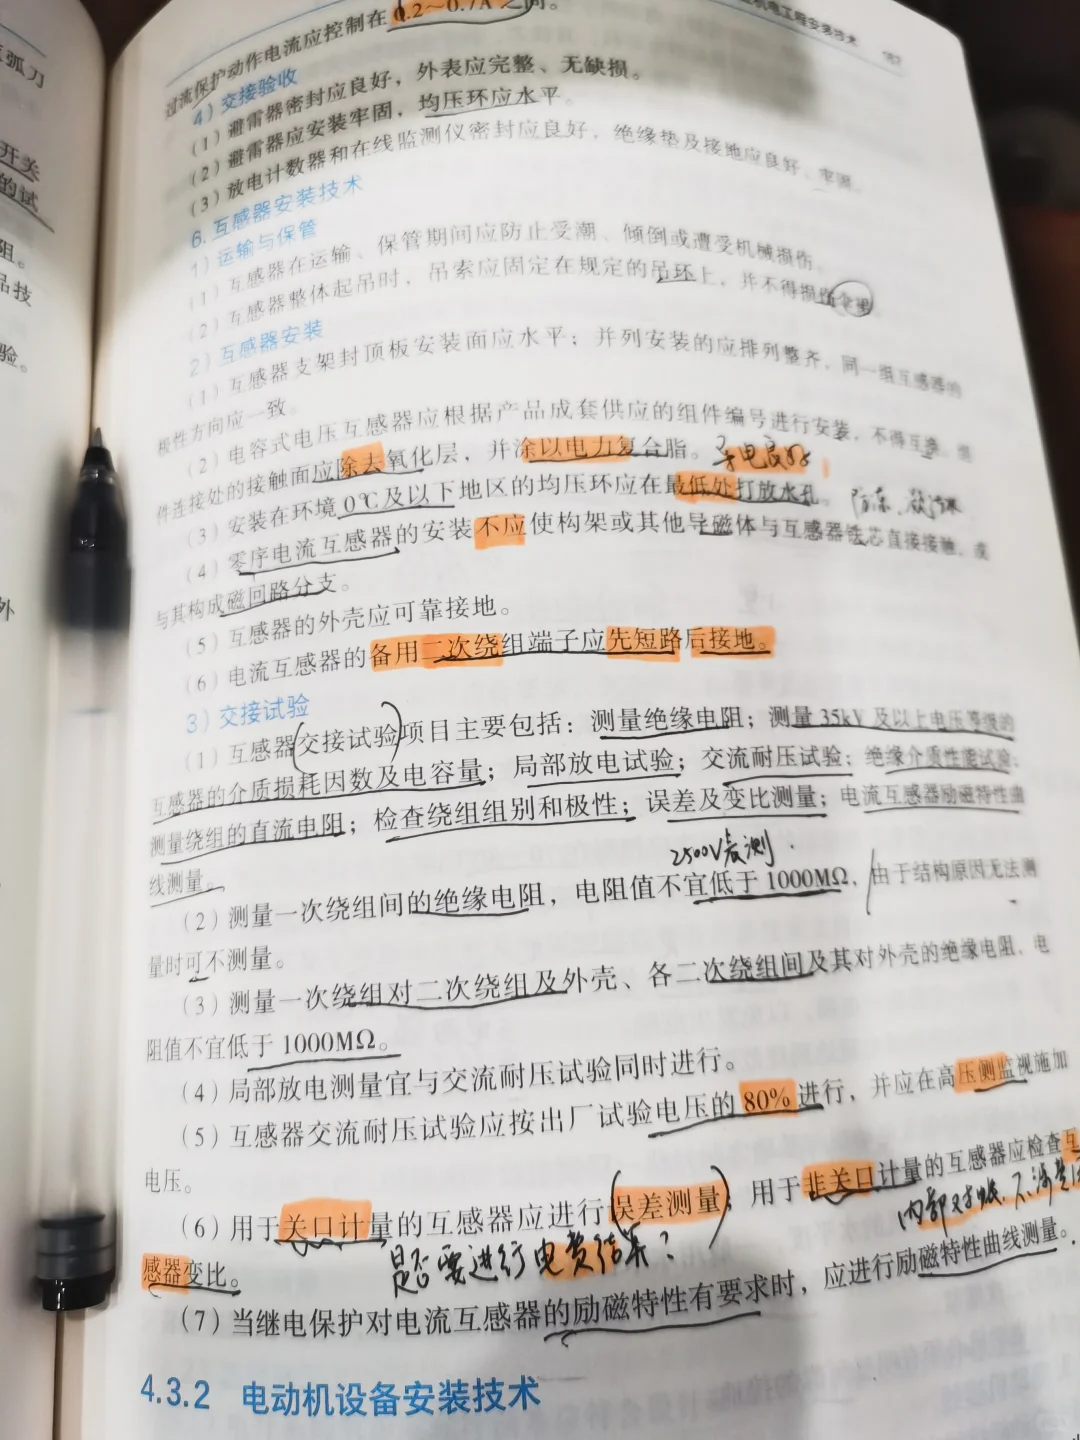 机电工程安装技术 187
过流保护动作电流应控制在0.2～0.7A之间。
4）交接验收
（1）避雷器密封应良好，外表应完整、无缺损。
（2）避雷器应安装牢固，均压环应水平。
（3）放电计数器和在线监测仪密封应良好，绝缘垫及接地应良好、牢固。
6. 互感器安装技术
1）运输与保管
（1）互感器在运输、保管期间应防止受潮、倾倒或遭受机械损伤。
（2）互感器整体起吊时，吊索应固定在规定的吊环上，并不得损伤伞裙
2）互感器安装
（1）互感器支架封顶板安装面应水平；并列安装的应排列整齐，同一组互感器的
极性方向应一致。
（2）电容式电压互感器应根据产品成套供应的组件编号进行安装，不得互换，组
件连接处的接触面应除去氧化层，并涂以电力复合脂。 导电良好
（3）安装在环境0℃及以下地区的均压环应在最低处打放水孔。 防冻、
（4）零序电流互感器的安装不应使构架或其他导磁体与互感器铁芯直接接触，或
与其构成磁回路分支。
（5）互感器的外壳应可靠接地。
（6）电流互感器的备用二次绕组端子应先短路后接地。
3）交接试验
（1）互感器交接试验项目主要包括：测量绝缘电阻；测量35kV及以上电压等级的
互感器的介质损耗因数及电容量；局部放电试验；交流耐压试验；绝缘介质性能试验；
测量绕组的直流电阻；检查绕组组别和极性；误差及变比测量；电流互感器励磁特性曲
线测量。
2500V表测
（2）测量一次绕组间的绝缘电阻，电阻值不宜低于1000MΩ，由于结构原因无法测
量时可不测量。
（3）测量一次绕组对二次绕组及外壳、各二次绕组间及其对外壳的绝缘电阻，电
阻值不宜低于1000MΩ。
（4）局部放电测量宜与交流耐压试验同时进行。
（5）互感器交流耐压试验应按出厂试验电压的80%进行，并应在高压侧监视施加
电压。
（6）用于关口计量的互感器应进行误差测量；用于非关口计量的互感器应检查互
内部对账，不
感器变比。 是否要进行电费结算？
（7）当继电保护对电流互感器的励磁特性有要求时，应进行励磁特性曲线测量。
4.3.2 电动机设备安装技术
弧刀
开关
的试
阻。
品技
验。
外